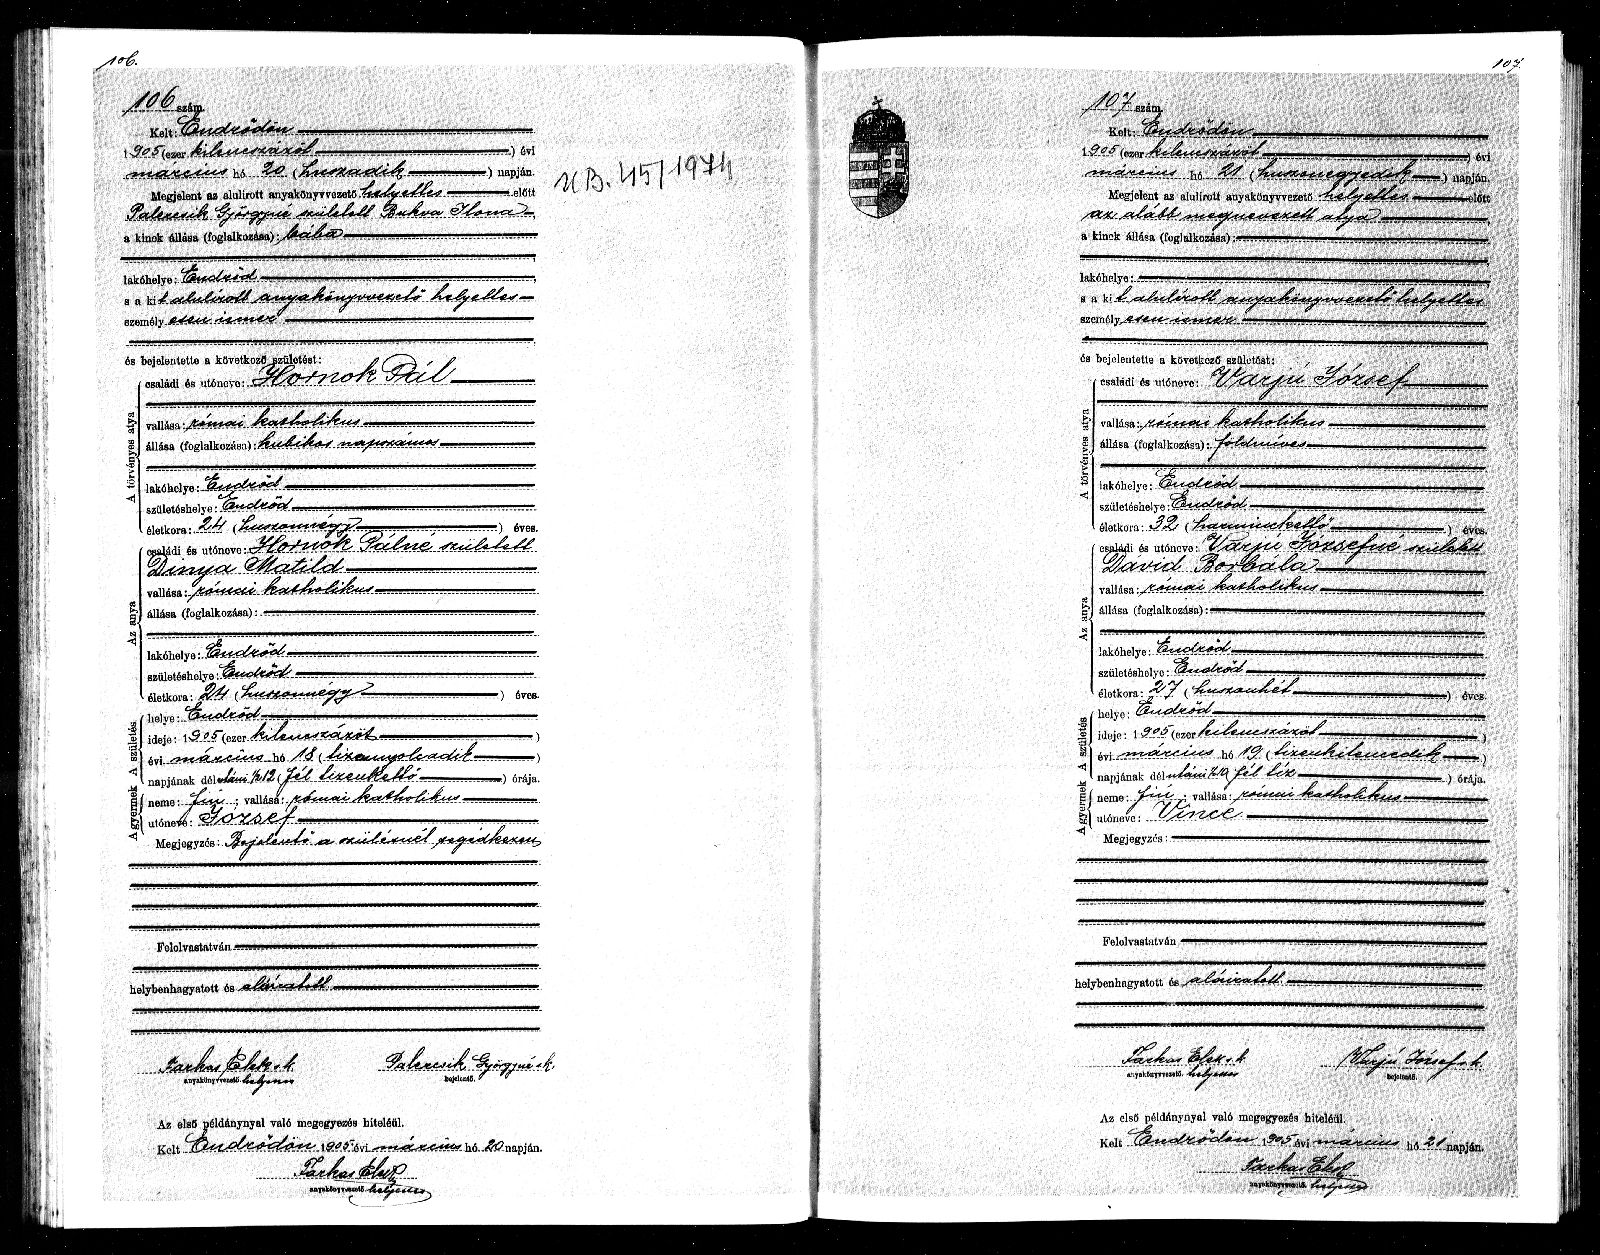 106.
106 szám.
Kelt: Endrődön
1905 (ezer kilencszázöt) évi
március hó 20 (huszadik) napján.
Megjelent az alulirott anyakönyvvezető helyettes előtt
Palercsik Györgyné született Bukva Ilona
a kinek állása (foglalkozása): bába
lakóhelye: Endrőd
s a kit alulírott anyakönyvvezető helyettes
személyesen ismer
és bejelentette a következő születést:
A törvényes atya
családi és utóneve: Hornok Pál
vallása: római katholikus
állása (foglalkozása): kubikos napszámos
lakóhelye: Endrőd
születéshelye: Endrőd
életkora: 24 (huszonnégy) éves.
Az anya
családi és utóneve: Hornok Pálné született
Dinya Matild
vallása: római katholikus
állása (foglalkozása):
lakóhelye: Endrőd
születéshelye: Endrőd
életkora: 24 (huszonnégy) éves.
A születés
helye: Endrőd
ideje: 1905 (ezer kilencszázöt)
évi március hó 18 (tizennyolcadik)
napjának délutáni 1/2 12 (fél tizenkettő) órája.
A gyermek
neme: fiú; vallása: római katholikus
utóneve: József
Megjegyzés: Bejelentő a szülésnél segédkezett
Felolvastatván
helybenhagyatott és aláíratott
Farkas Elek s.k. Palercsik Györgyné s.k.
anyakönyvvezető helyettes bejelentő.
Az első példánynyal való megegyezés hiteléül.
Kelt Endrődön 1905 évi március hó 20 napján.
Farkas Elek
anyakönyvvezető helyettes
U B. 45/1974
107.
107 szám.
Kelt: Endrődön
1905 (ezer kilencszázöt) évi
március hó 21 (huszonegyedik) napján.
Megjelent az alulirott anyakönyvvezető helyettes előtt
az alább megnevezett atya
a kinek állása (foglalkozása):
lakóhelye:
s a kit alulírott anyakönyvvezető helyettes
személyesen ismer
és bejelentette a következő születést:
A törvényes atya
családi és utóneve: Varjú József
vallása: római katholikus
állása (foglalkozása): földmíves
lakóhelye: Endrőd
születéshelye: Endrőd
életkora: 32 (harminckettő) éves.
Az anya
családi és utóneve: Varjú Józsefné született
Dávid Borbála
vallása: római katholikus
állása (foglalkozása):
lakóhelye: Endrőd
születéshelye: Endrőd
életkora: 27 (huszonhét) éves.
A születés
helye: Endrőd
ideje: 1905 (ezer kilencszázöt)
évi március hó 19 (tizenkilencedik)
napjának délutáni 1/2 10 fél tíz) órája.
A gyermek
neme: fiú; vallása: római katholikus
utóneve: Vince
Megjegyzés:
Felolvastatván
helybenhagyatott és aláíratott
Farkas Elek s.k. Varjú József s.k.
anyakönyvvezető. helyettes bejelentő.
Az első példánynyal való megegyezés hiteléül.
Kelt Endrődön 1905 évi március hó 21 napján.
Farkas Elek
anyakönyvvezető. helyettes